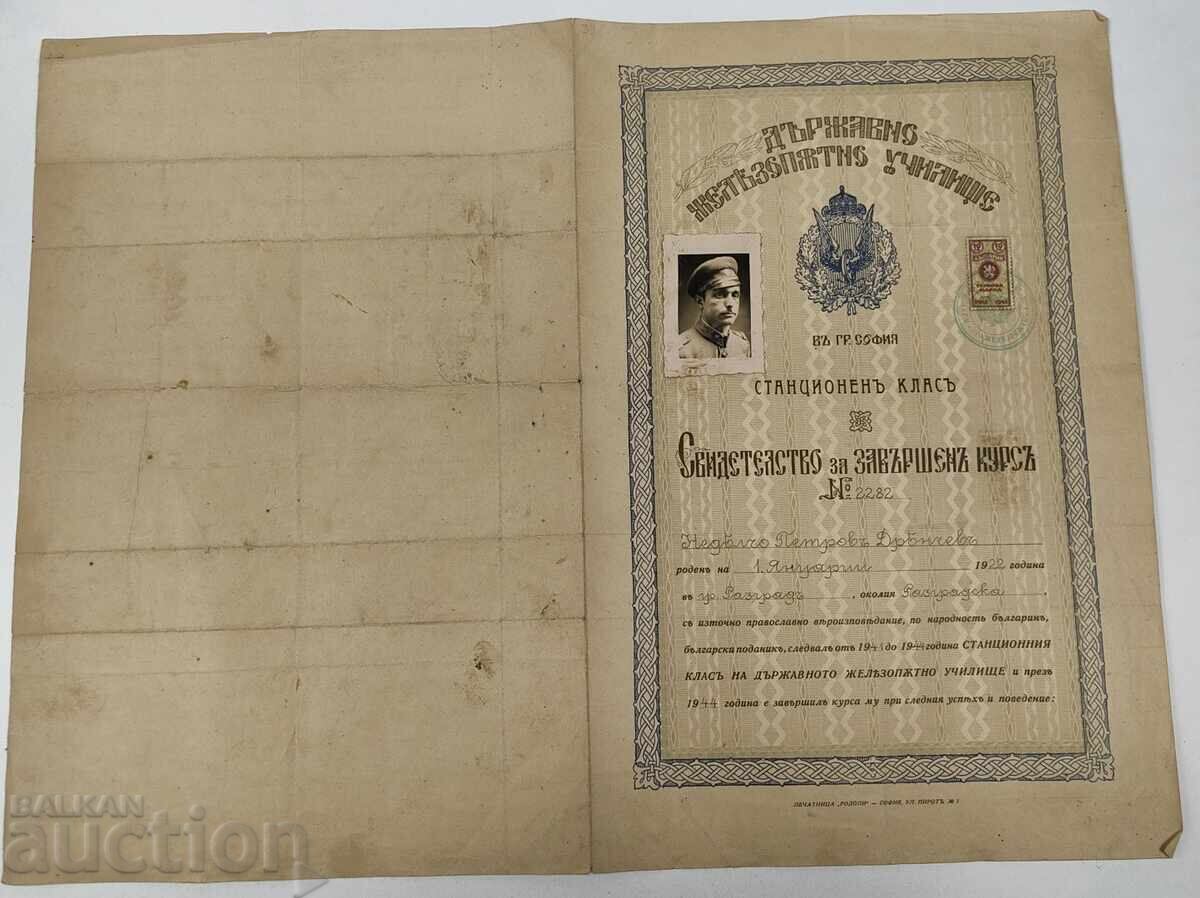 ДЪРЖАВНО
ЖЕЛѢЗОПѪТНО УЧИЛИЩЕ
ВЪ ГР. СОФИЯ
СТАНЦИОНЕНЪ КЛАСЪ
СВИДЕТЕЛСТВО ЗА ЗАВЪРШЕНЪ КУРСЪ
№ 2282
Недѣлчо Петровъ Дрѣнчевъ
роденъ на 1. Януарий 1922 година
въ гр. Разградъ, околия Разградска,
съ източно православно вѣроизповѣдание, по народность българинъ,
български поданикъ, следвалъ отъ 1943 до 1944 година СТАНЦИОННИЯ
КЛАСЪ НА ДЪРЖАВНОТО ЖЕЛѢЗОПѪТНО УЧИЛИЩЕ и презъ
1944 година е завършилъ курса му при следния успѣхъ и поведение:
ПЕЧАТНИЦА „РОДОПИ“ — СОФИЯ, УЛ. ПИРОТЪ, №
BALKAN
auction